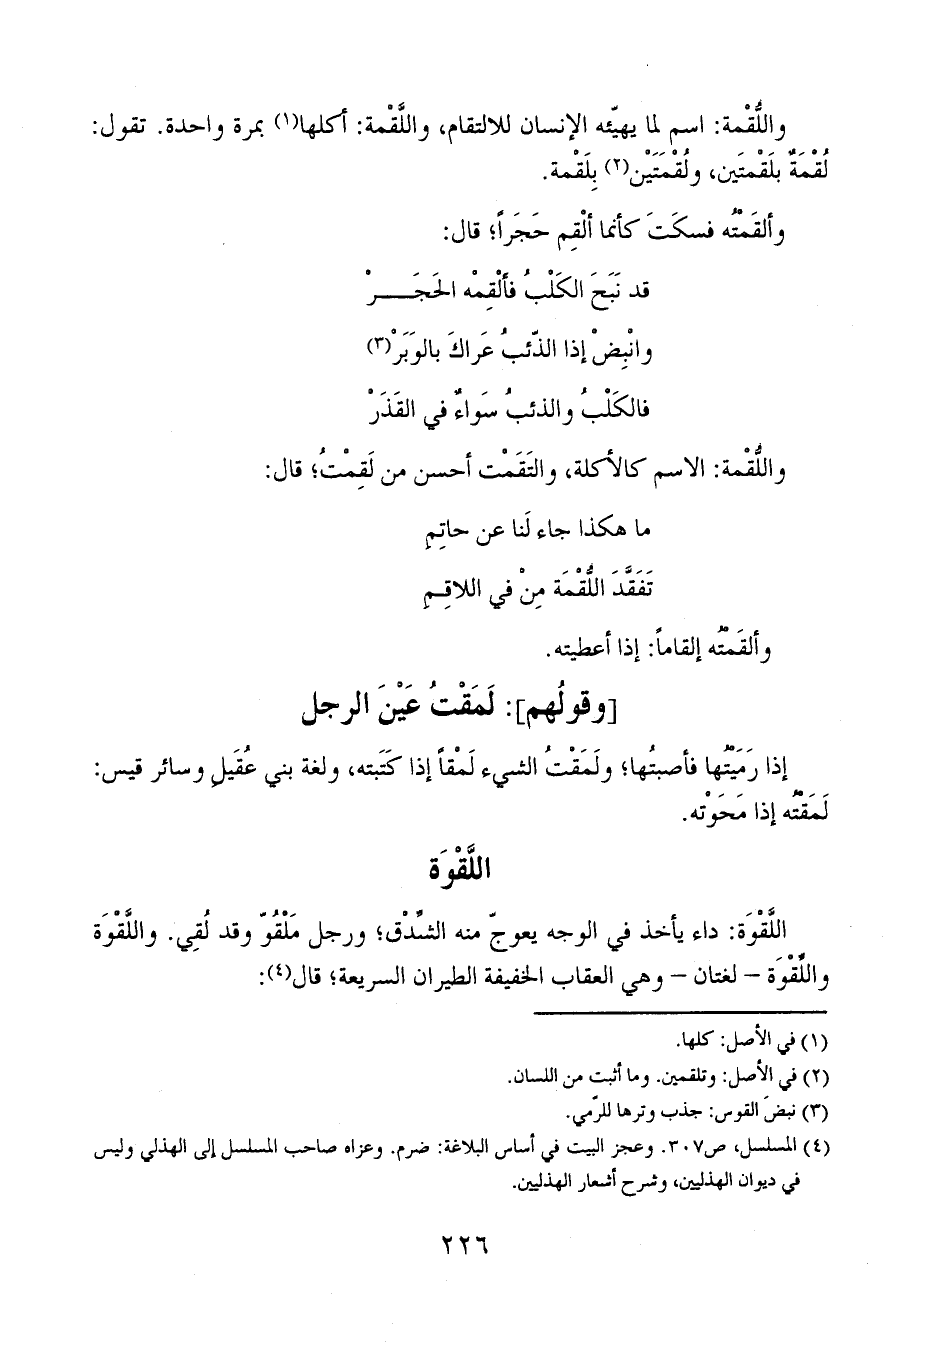 واللُّقْمة: اسم لما يهيّئه الإنسان للالتقام، واللَّقْمة: أكلها(١) بمرة واحدة. تقول:
لُقْمَةٌ بلَقْمتَين، ولُقْمَتَيْن(٢) بِلَقْمة.
وألقَمْتُه فسكَتَ كأنما ألْقِم حَجَراً؛ قال:
قد نَبَحَ الكَلْبُ فأَلْقِمْه الحَجَـــرْ
وانْبِضْ إذا الذّئبُ عَراكَ بالوَبَرْ(٣)
فالكَلْبُ والذئبُ سَواءٌ في القَذَرْ
واللُّقْمة: الاسم كالأكلة، والتَقَمْت أحسن من لَقِمْتُ؛ قال:
ما هكذا جاء لَنا عن حاتِمِ
تَفَقَّدَ اللُّقْمَة مِنْ في اللاقِـمِ
وألقَمْتُه إلقاماً: إذا أعطيته.
[وقولُهم]: لَمَقْتُ عَيْنَ الرجل
إذا رَمَيْتُها فأصبتُها؛ ولَمَقْتُ الشيء لَمْقاً إذا كَتَبته، ولغة بني عُقَيلِ وسائر قيس:
لَمَقْتُه إذا مَحَوْته.
اللَّقْوَة
اللَّقْوَة: داء يأخذ في الوجه يعوجّ منه الشِّدْق؛ ورجل مَلْقُوّ وقد لُقِي. واللَّقْوَة
واللِّقْوَة – لغتان – وهي العقاب الخفيفة الطيران السريعة؛ قال(٤):
(١) في الأصل: كلها.
(٢) في الأصل: وتلقمين. وما أثبت من اللسان.
(٣) نبضَ القوس: جذب وترها للرّمي.
(٤) المسلسل، ص٣٠٧. وعجز البيت في أساس البلاغة: ضرم. وعزاه صاحب المسلسل إلى الهذلي وليس
في ديوان الهذليين، وشرح أشعار الهذليين.
٢٢٦